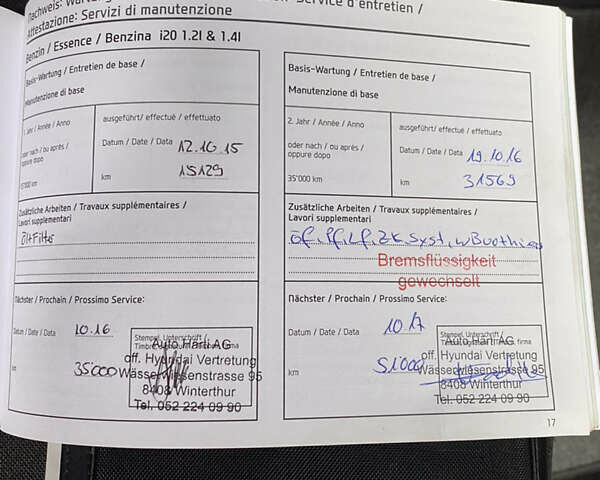 Nachweis:
Service d'entretien /
Attestazione: Servizi di manutenzione
Benzin / Essence / Benzina i20 1.2l & 1.4l
Basis-Wartung / Entretien de base /
Manutenzione di base
1. Jahr / Année / Anno
ausgeführt/ effectué / effettuato
oder nach / ou après /
oppure dopo
Datum / Date / Data 12.10.15
15'000 km
km 15129
Zusätzliche Arbeiten / Travaux supplémentaires /
Lavori supplementari
Öl+Filter
Nächster / Prochain / Prossimo Service:
Datum / Date / Data 10.16
km 35000
Stempel, Unterschrift /
Auto Härti AG
off. Hyundai Vertretung
Wässerwiesenstrasse 95
8408 Winterthur
Tel. 052 224 09 90
Basis-Wartung / Entretien de base /
Manutenzione di base
2. Jahr / Année / Anno
ausgeführt/ effectué / effettuato
oder nach / ou après /
oppure dopo
Datum / Date / Data 19.10.16
35'000 km
km 31569
Zusätzliche Arbeiten / Travaux supplémentaires /
Lavori supplementari
Syst,
Bremsflüssigkeit
gewechselt
Nächster / Prochain / Prossimo Service:
Datum / Date / Data 10.17
km 51000
Stempel, Unterschrift /
firma
Auto Härti AG
off. Hyundai Vertretung
Wässerwiesenstrasse 95
8408 Winterthur
Tel. 052 224 09 90
17